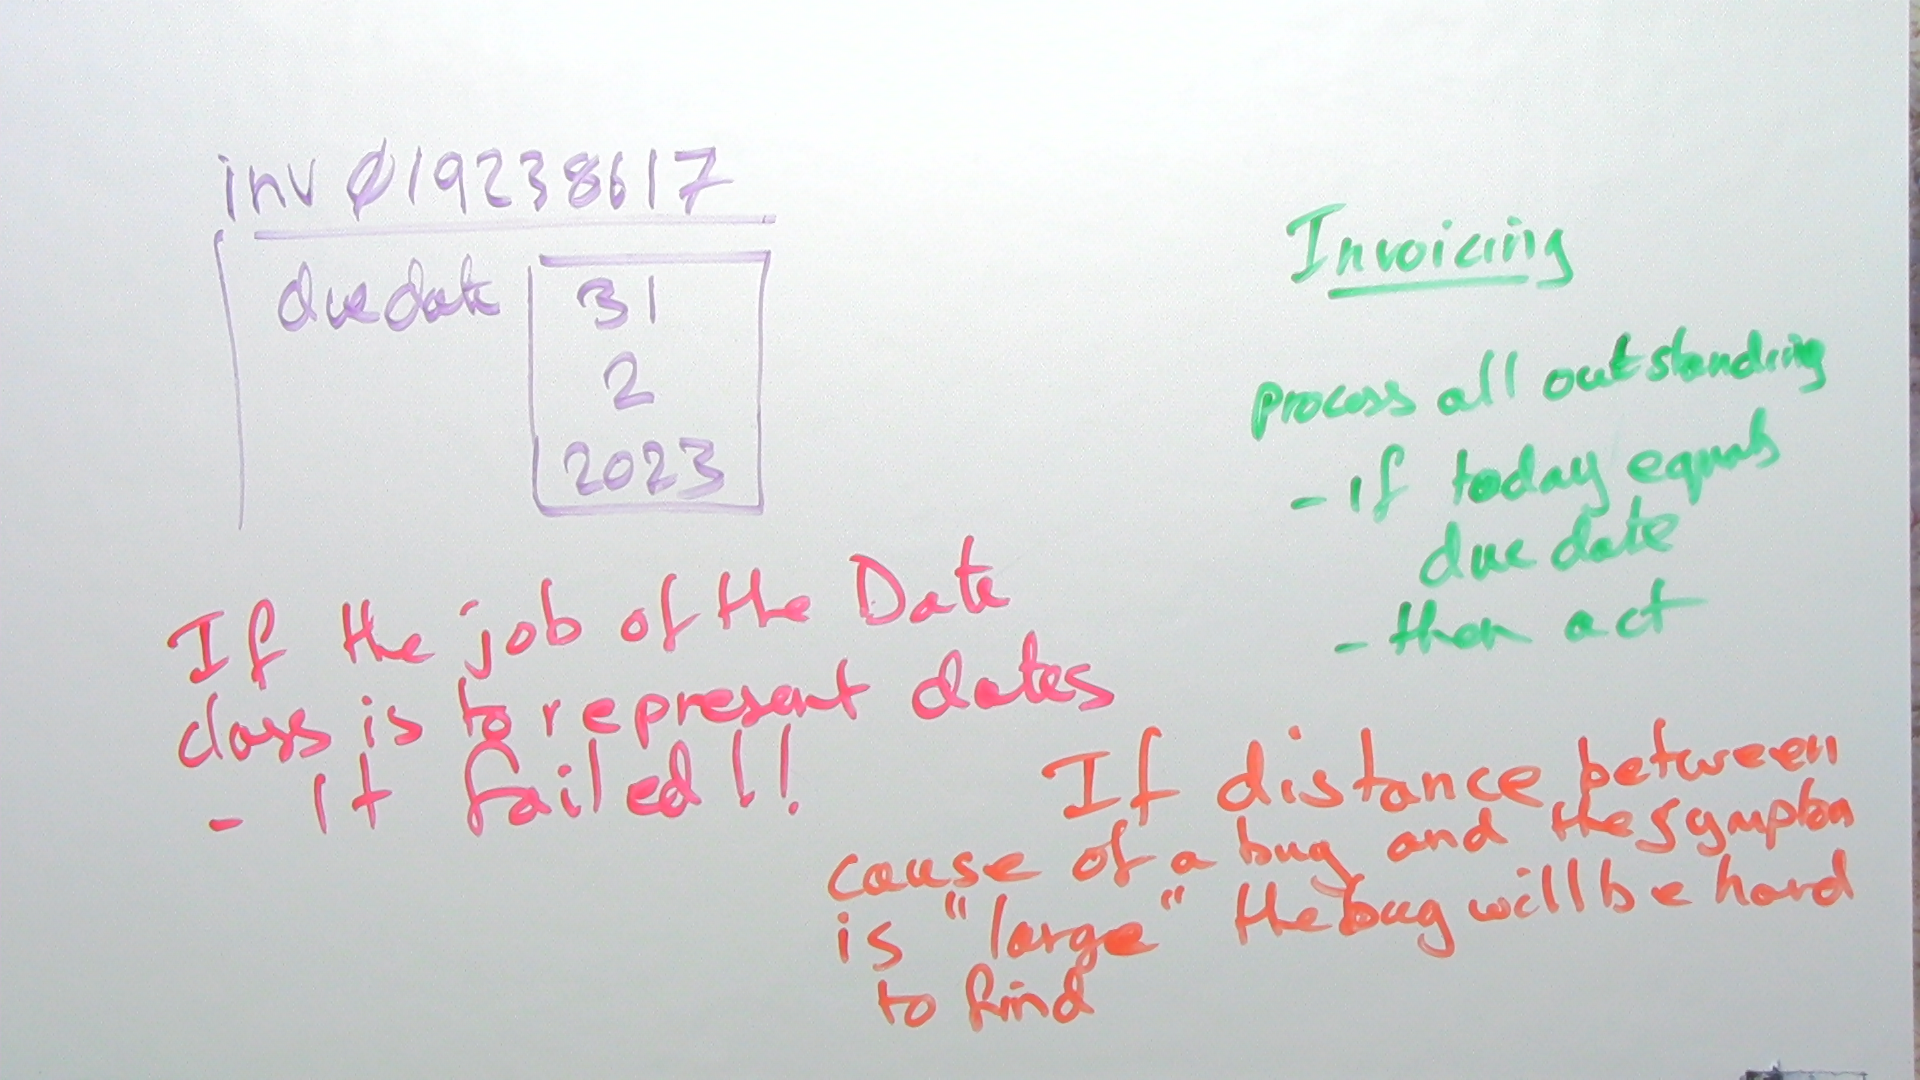 inv 019238617
due date
31
2
2023
Invoicing
process all outstanding
- if today equals
due date
- then act
If the job of the Date
class is to represent dates
- it failed!!
If distance between
cause of a bug and the symptom
is "large" the bug will be hard
to find